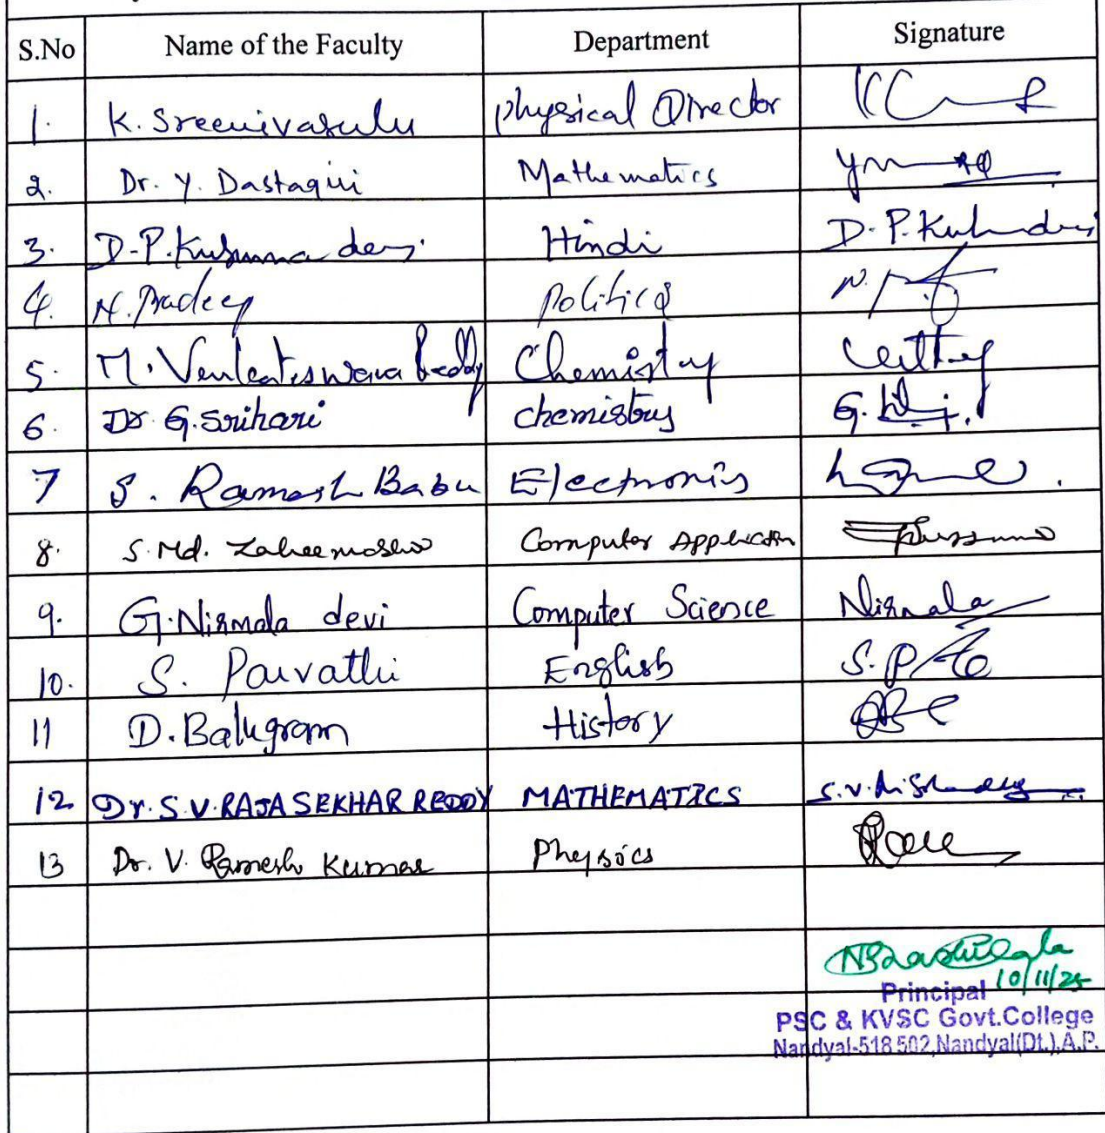 S.No Name of the Faculty Department Signature
1. K. Sreenivasulu Physical Director
2. Dr. Y. Dastagiri Mathematics
3. D.P. Kusuma devi Hindi D.P.
4. N. Pradeep Politics
5. M. Venkateswara Reddy Chemistry
6. Dr. G. Srihari chemistry G.
7 S. Ramesh Babu Electronics
8. S. Md. Computer Application
9. G. Nirmala devi Computer Science Nirmala
10. S. Parvathi English S. P
11 D. Balugram History
12 Dr. S.V. RAJA SEKHAR REDDY MATHEMATICS S.V.
13 Dr. V. Ramesh Kumar Physics
10/11/25
Principal
PSC & KVSC Govt.College
Nandyal-518 502, Nandyal(Dt.), A.P.